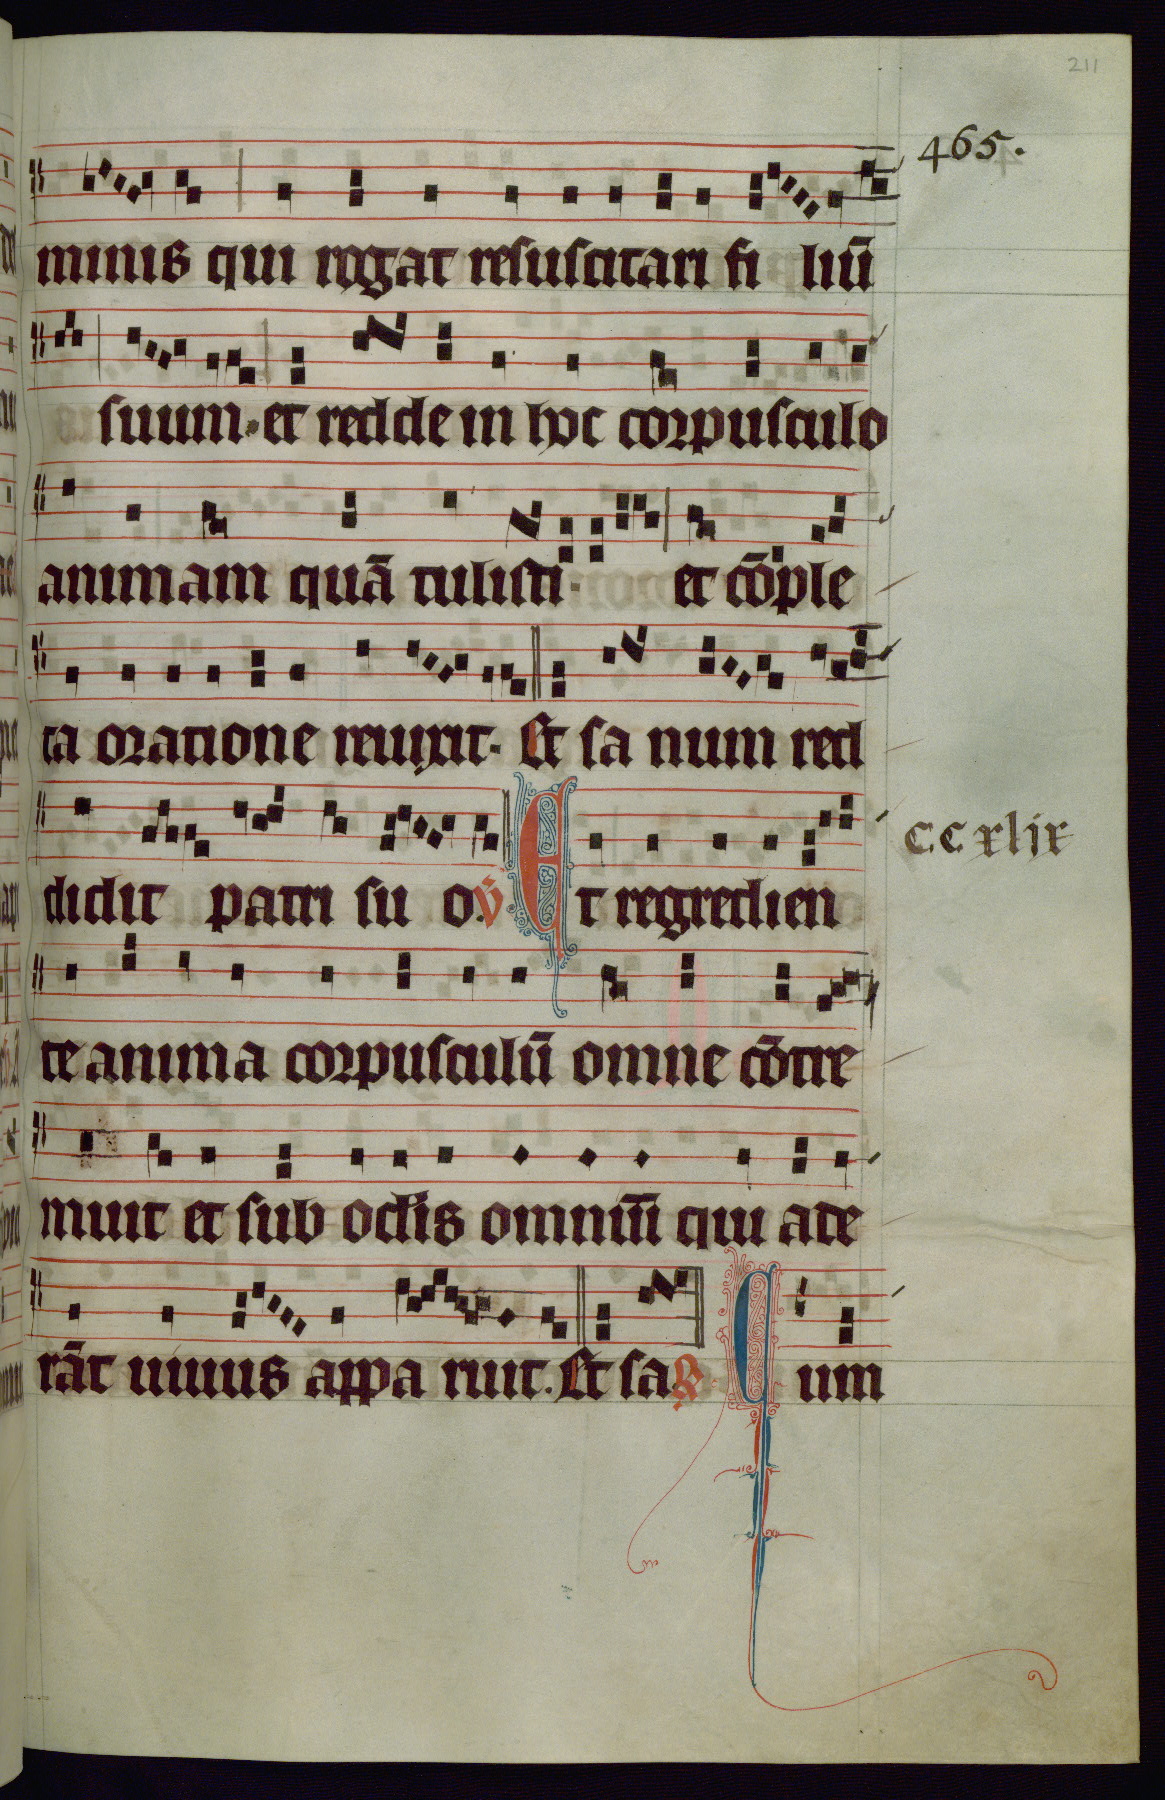 211
465.
minis qui rogat resuscitari fi liū
suum. et redde in hoc corpusculo
animam quā tulisti. et cōple
ta oratione reuixit. Et sa num red
didit patri su o. V̄ Et regredien
CCxlix
te anima corpusculū omne cōtre
muit et sub oclis omniū qui ade
rāt uiuus appa ruit. Et sa R̄ Cum